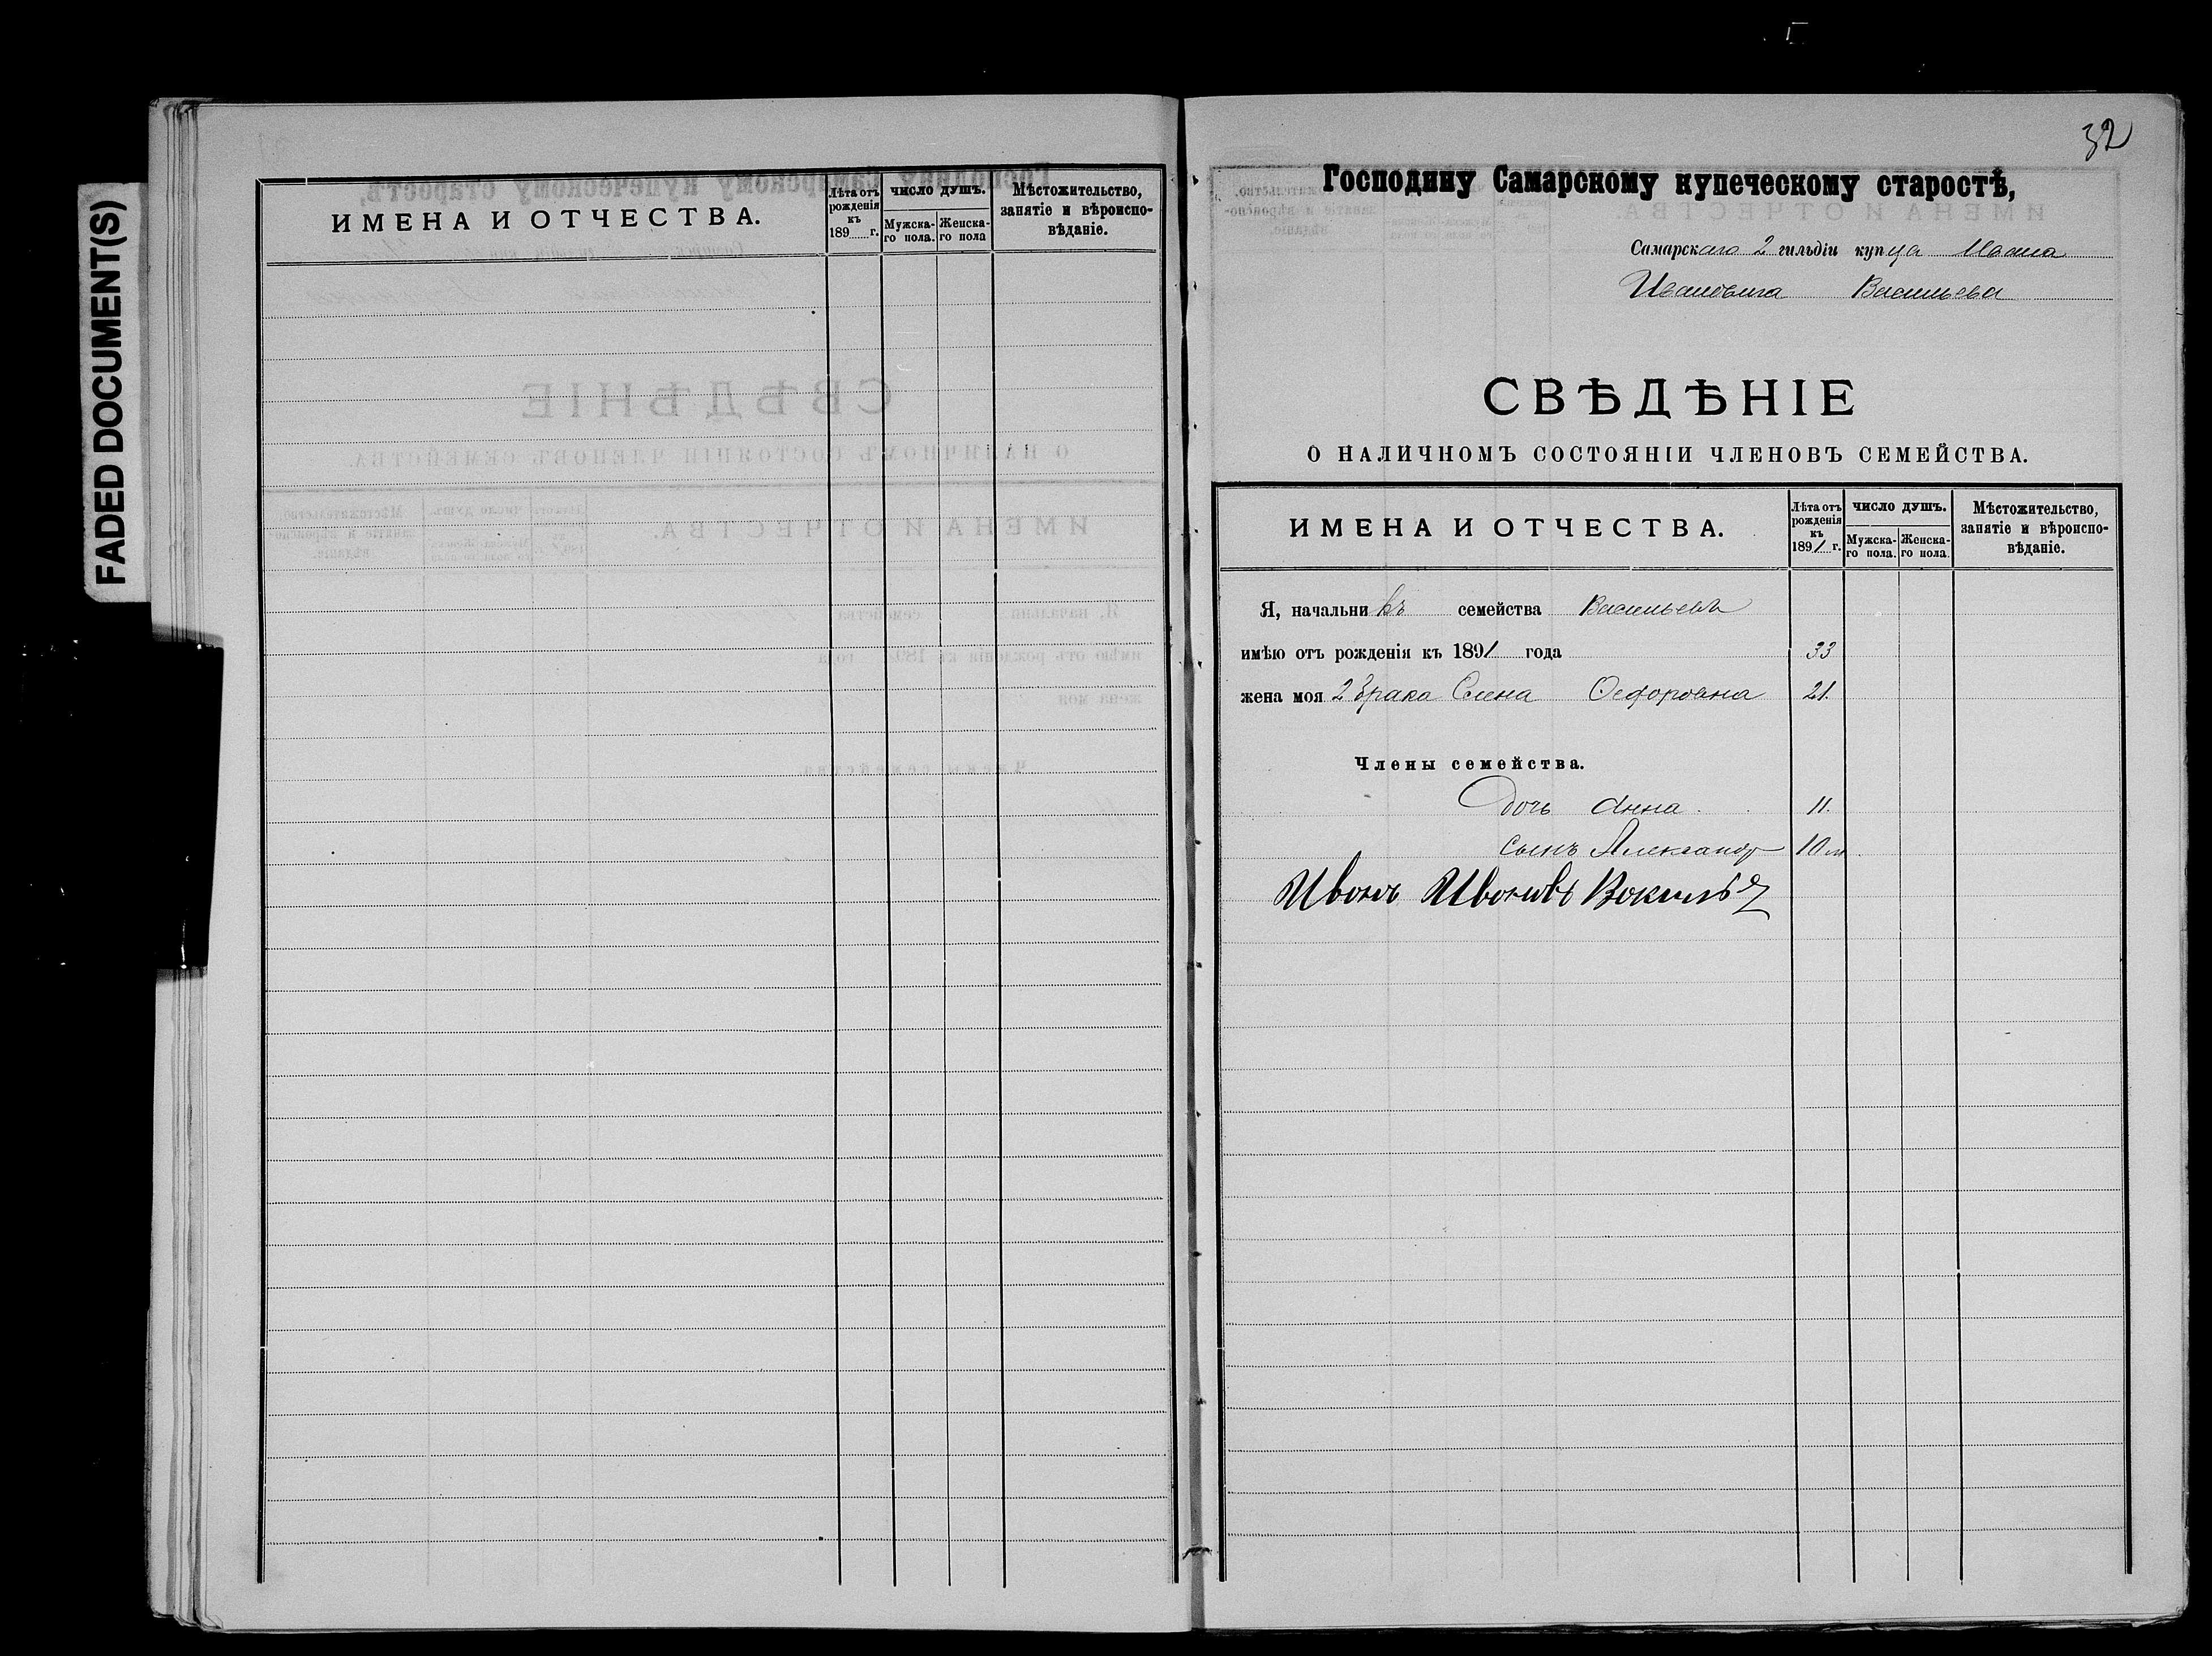 FADED DOCUMENT(S)
ИМЕНА И ОТЧЕСТВА.
Лѣта отъ рожденія къ 189 г.
число душъ.
Мужска-го пола.
Женска-го пола
Мѣстожительство, занятіе и вѣроиспо-вѣданіе.
32
Господину Самарскому купеческому старостѣ,
Самарскаго 2 гильдіи купца Ивана
Ивановича Васильева
СВѢДѢНІЕ
О НАЛИЧНОМЪ СОСТОЯНІИ ЧЛЕНОВЪ СЕМЕЙСТВА.
ИМЕНА И ОТЧЕСТВА.
Лѣта отъ рожденія къ 1891 г.
число душъ.
Мужска-го пола.
Женска-го пола.
Мѣстожительство, занятіе и вѣроиспо-вѣданіе.
Я, начальникъ семейства Васильевъ
имѣю отъ рожденія къ 1891 года 33
жена моя 2 брака Елена Федоровна 21.
Члены семейства.
Дочь Анна 11.
Сынъ Александр 10 м
Ивонъ Ивонивъ